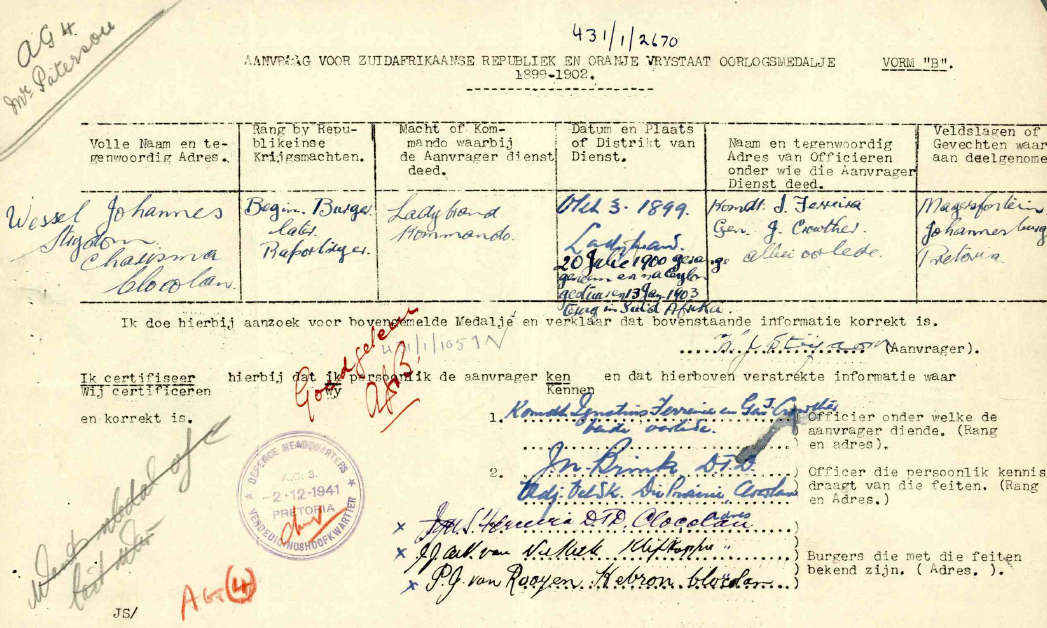 AG 4.
Mr Paterson
431/1/2670
AANVRAAG VOOR ZUIDAFRIKAANSE REPUBLIEK EN ORANJE VRYSTAAT OORLOGSMEDALJE
VORM "B".
1899-1902.
Volle Naam en te-
genwoordig Adres.
Rang by Repu-
blikeinse
Krijgsmachten.
Macht of Kom-
mando waarbij
de Aanvrager dienst
deed.
Datum en Plaats
of Distrikt van
Dienst.
Naam en tegenwoordig
Adres van Officieren
onder wie die Aanvrager
Dienst deed.
Veldslagen of
Gevechten waar
aan deelgenome
Wessel Johannes
Strydom
Charisma
Clocolan.
Begin. Burger
later
Rapportryer.
Ladybrand
Kommando.
Okt 3. 1899.
Ladybrand.
20 Julie 1900 gevange
geneem en na Ceylon
gestuur en 13 Jan. 1903
terug in Suid Afrika.
Komdt. I Ferreira
Gen. J. Crowther.
albei oorlede.
Magersfontein
Johannesburg
Pretoria
Ik doe hierbij aanzoek voor bovengemelde Medalje en verklaar dat bovenstaande informatie korrekt is.
W J Strydom (Aanvrager).
Goedgekeur
Ik certifiseer hierbij dat ik persoonlik de aanvrager ken en dat hierboven verstrekte informatie waar
Wij certificeren Wy Kennen
en korrekt is.
1. Komdt Ignatius Ferreira en Gen J. Crowther
beide oorlede.
Officier onder welke de
aanvrager diende. (Rang
en adres).
2. Jn Brink DTD
Adj. Veldk. Die Prairie, Clocolan
Officer die persoonlik kennis
draagt van die feiten. (Rang
en Adres.)
DEFENCE HEADQUARTERS
A.G. 3.
-2-12-1941
PRETORIA
VERDEDIGINGSHOOFKWARTIER
x Ferreira DTD. Clocolan
x van Niekerk Klipkoppie "
x P.J. van Rooyen Hebron Clocolan
Burgers die met die feiten
bekend zijn. ( Adres. ).
JS/
AG (4)